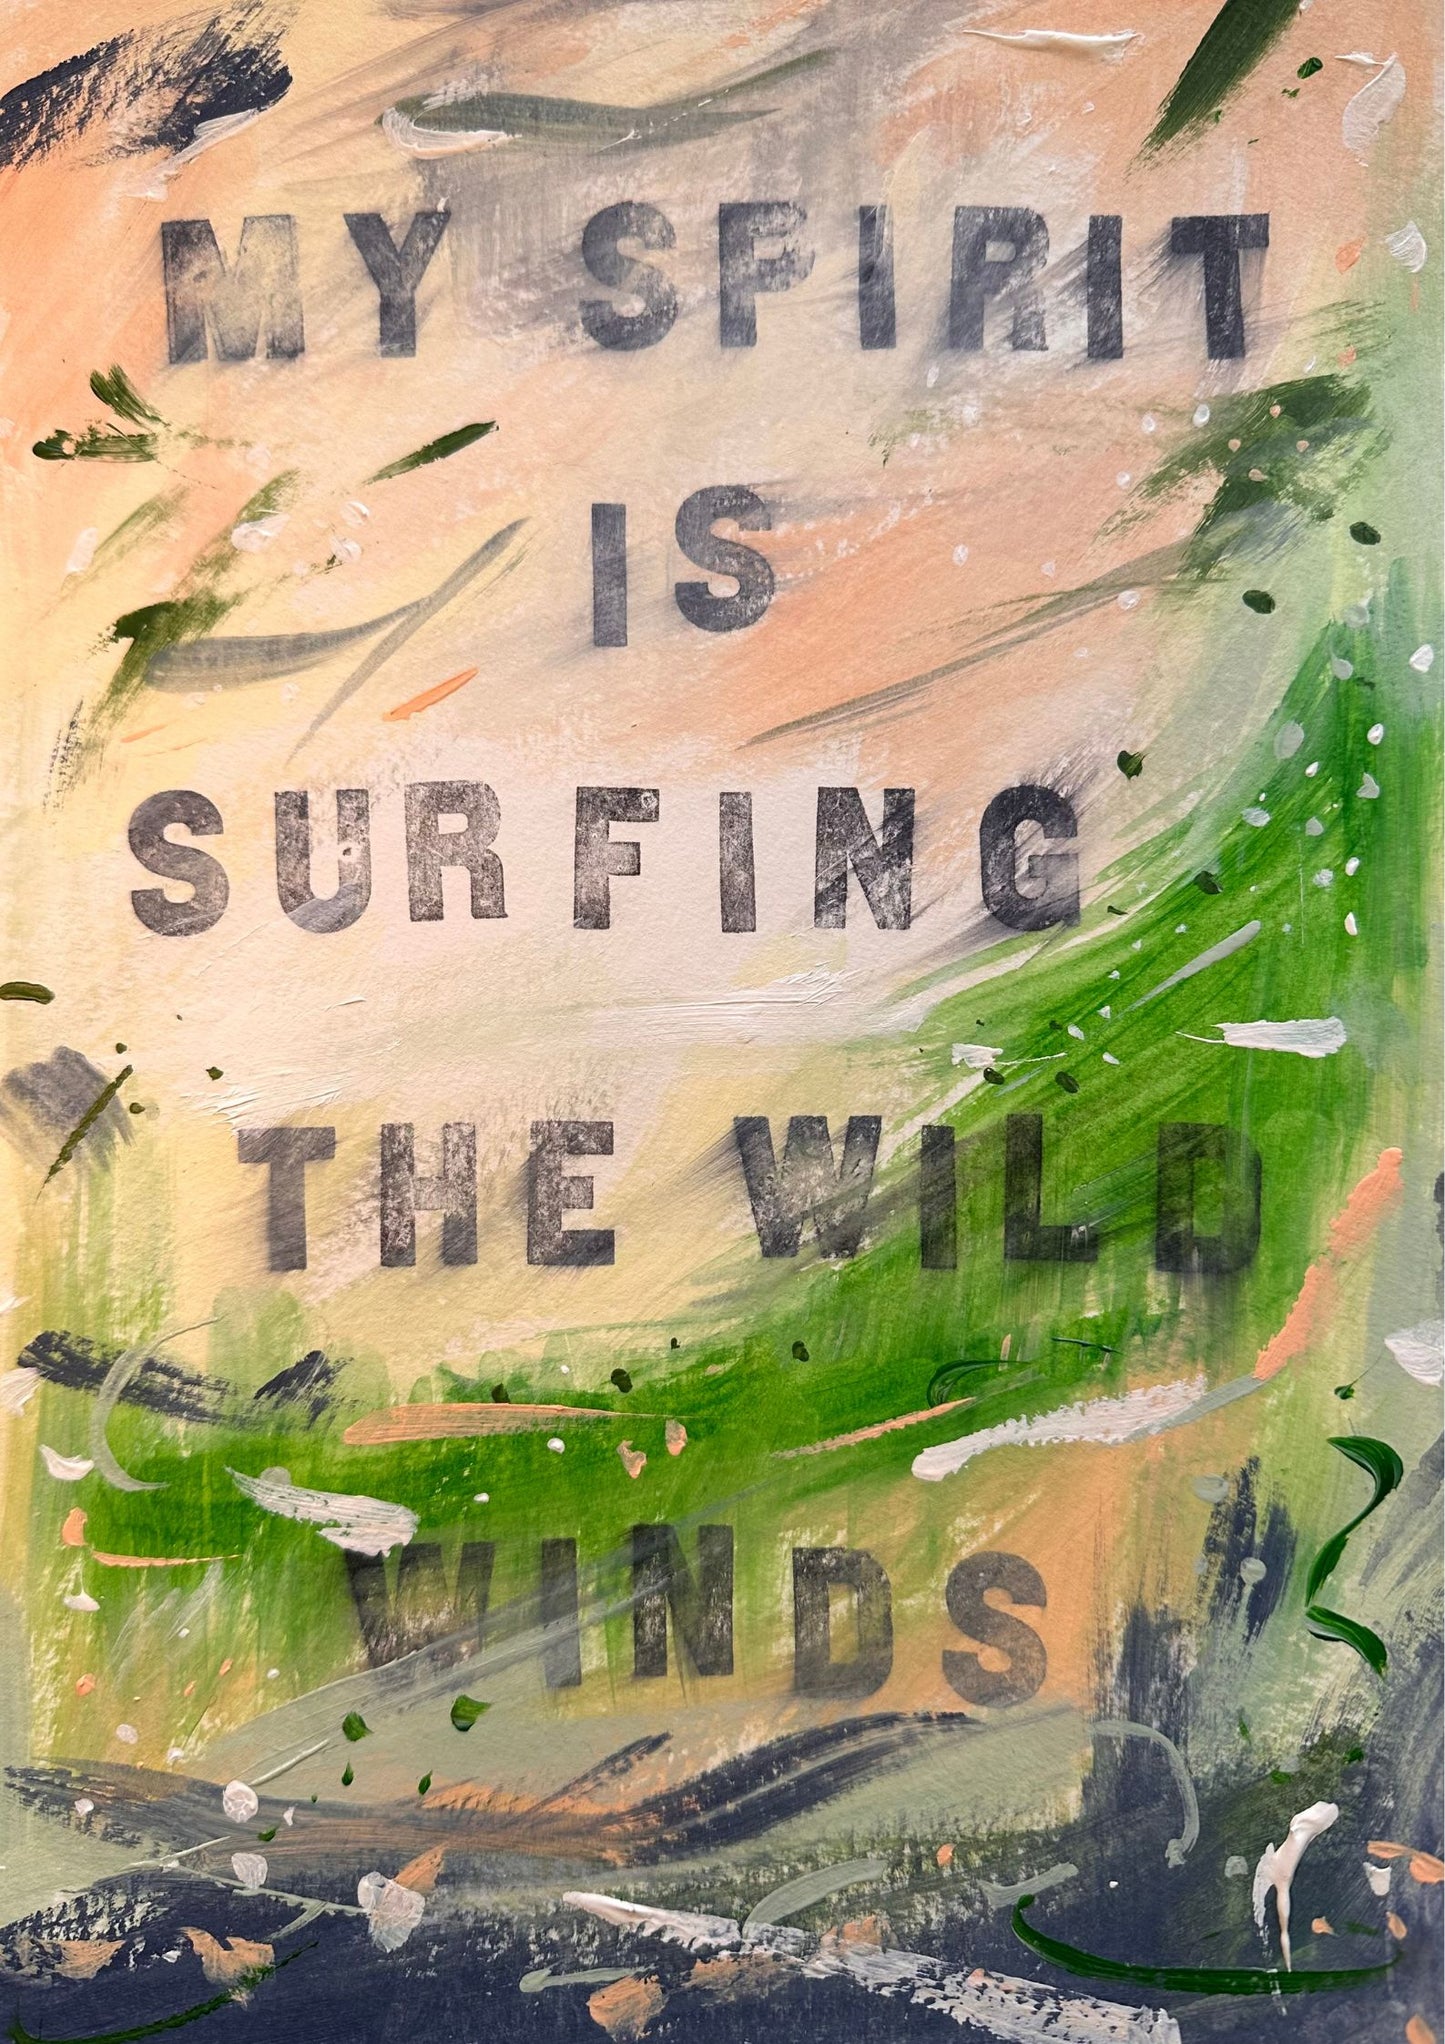 MY SPIRIT
IS
SURFING
THE WILD
WINDS